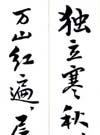 独立寒秋
万山红遍